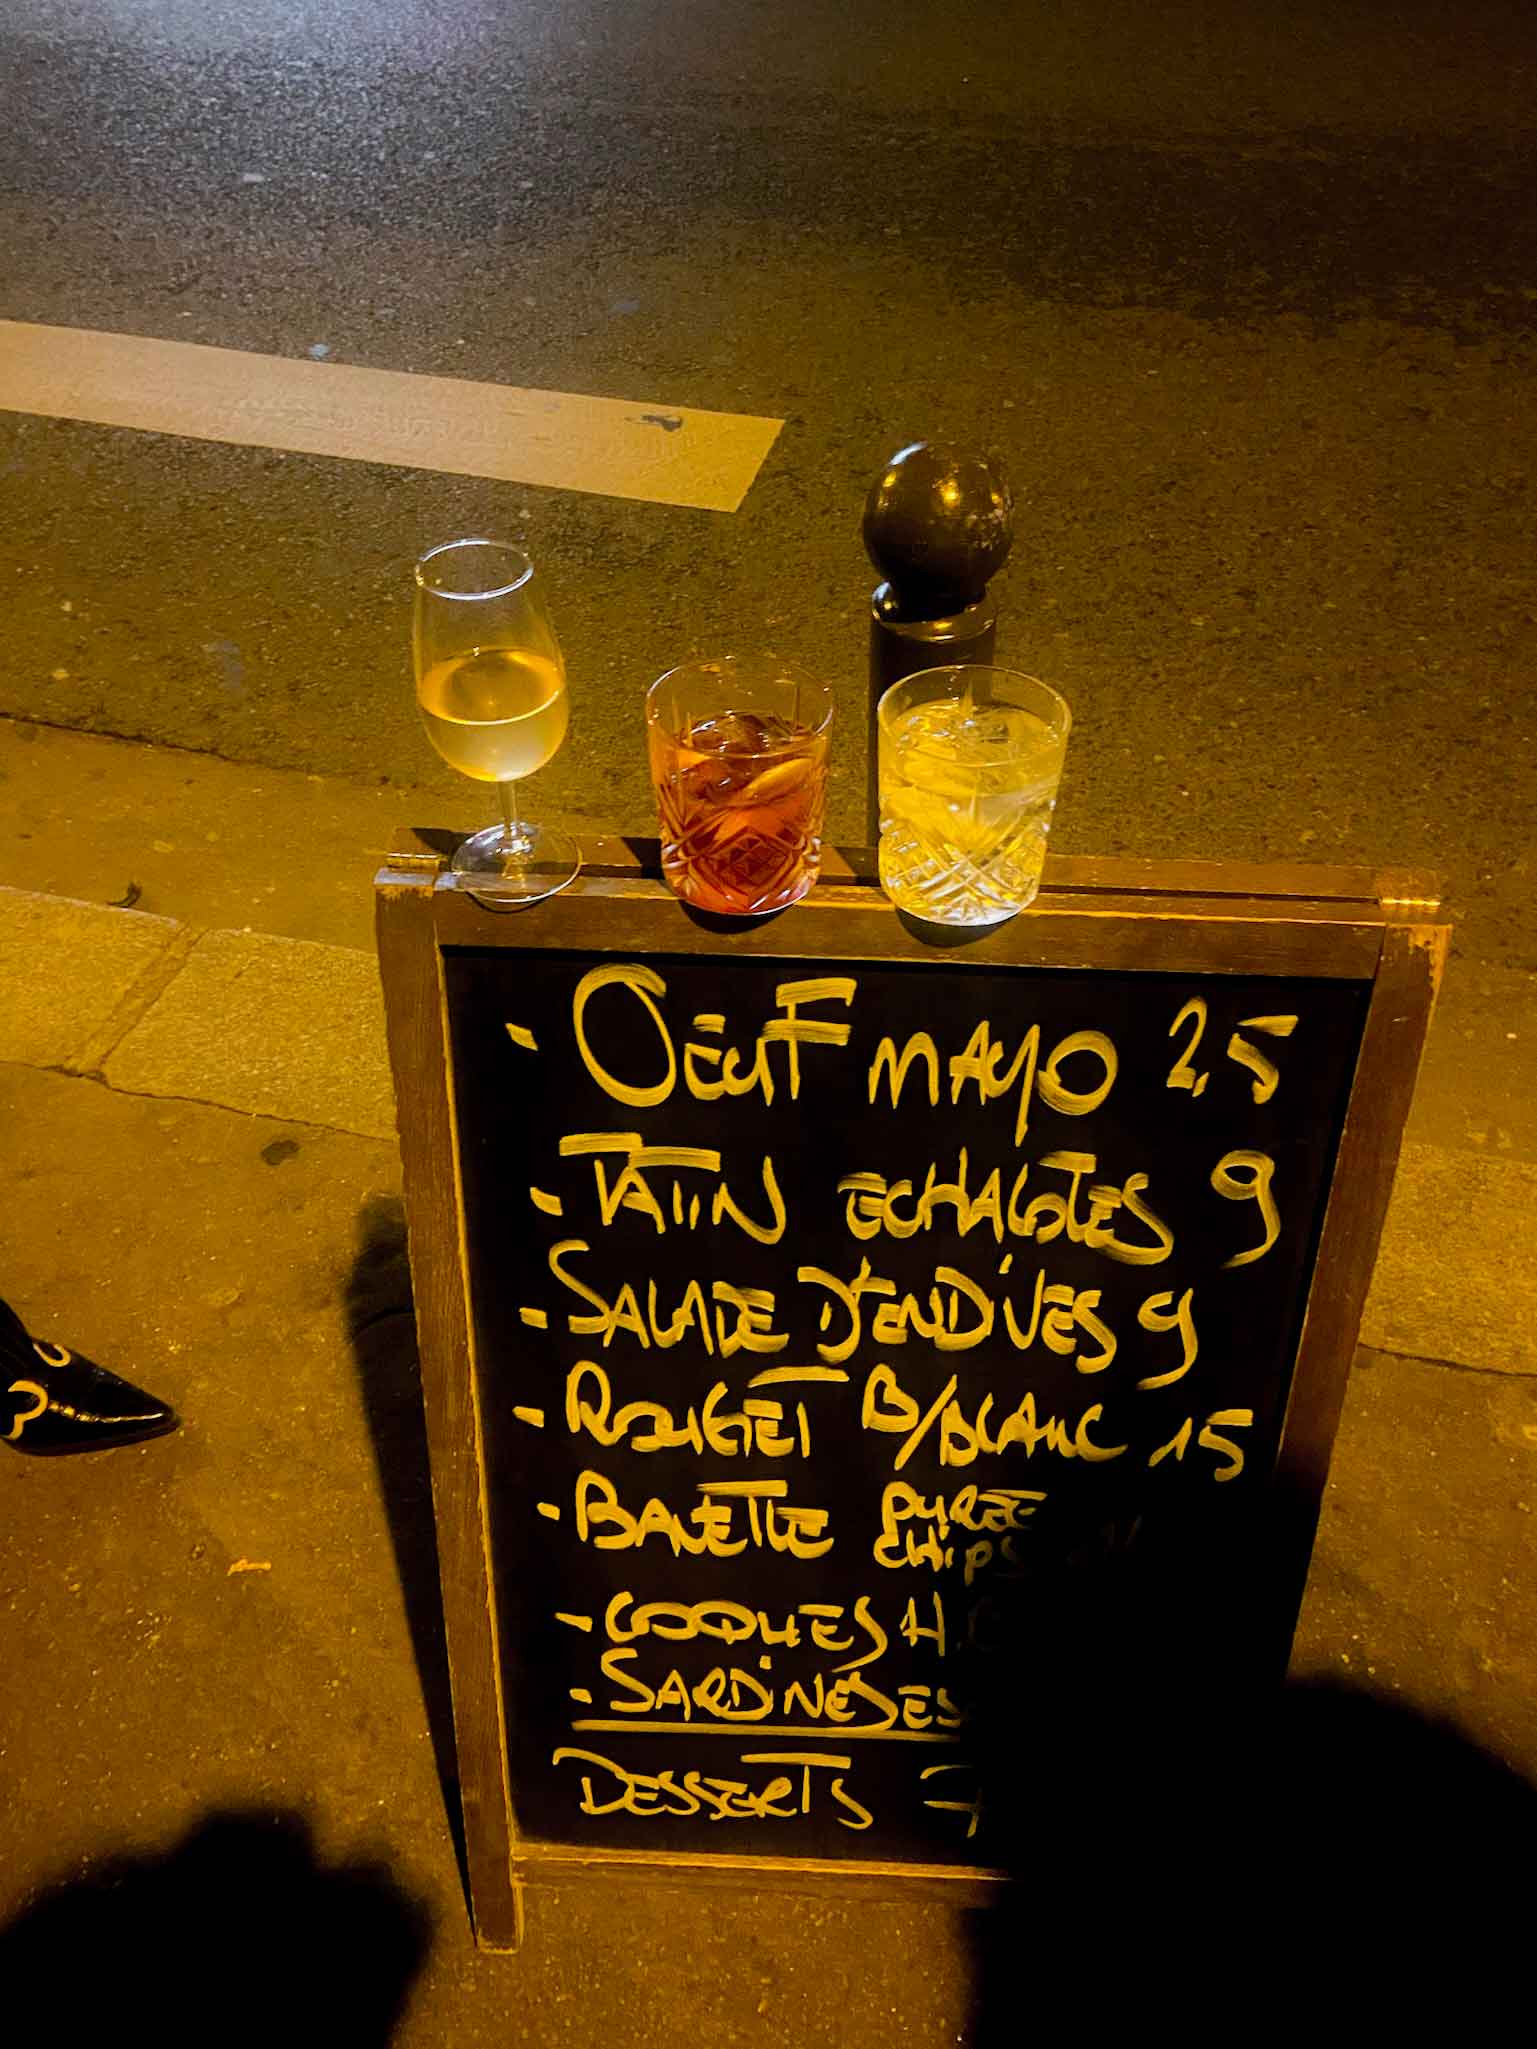 - OEUF MAYO 2,5
- TATIN ECHALOTES 9
- SALADE D'ENDIVES 9
- ROUGET B/BLANC 15
- BAVETTE PURÉE
CHIPS
- COQUES H.
- SARDINES ES
DESSERTS 7